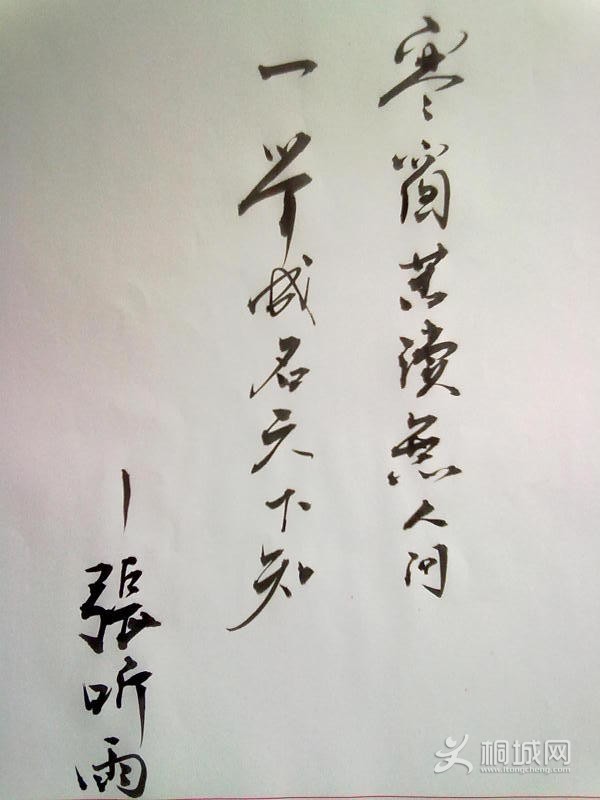 寒窗苦读無人问
一举成名天下知
—張昕雨
桐城网
www.itongcheng.com